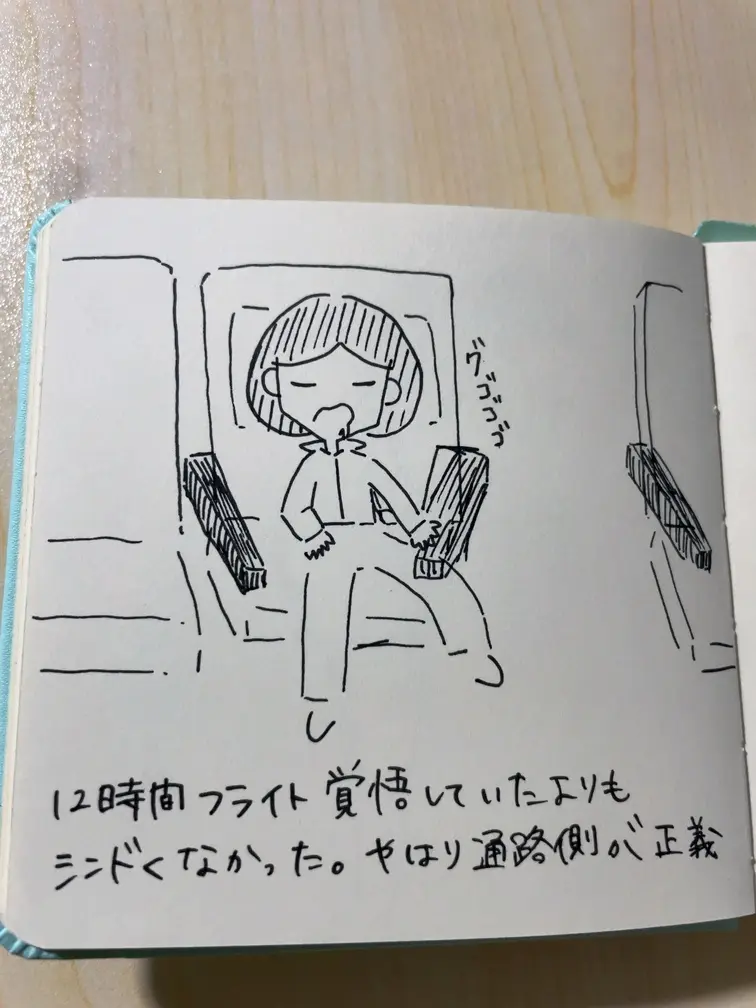 グゴゴゴゴ
12時間フライト覚悟していたよりも
シンドくなかった。やはり通路側が正義